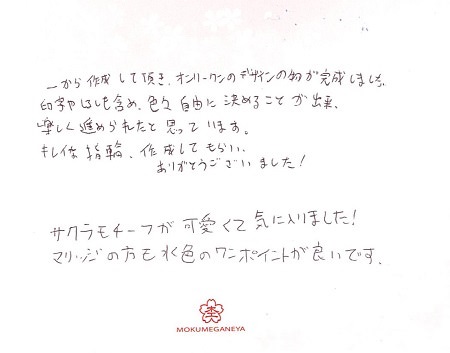 一から作成して頂き、オンリーワンのデザインの物が完成しました。
印字なども含め、色々自由に決めることが出来、
楽しく進められたと思っています。
キレイな指輪、作成してもらい、
ありがとうございました!
サクラモチーフが可愛くて気に入りました!
マリッジの方も水色のワンポイントが良いです。
MOKUMEGANEYA